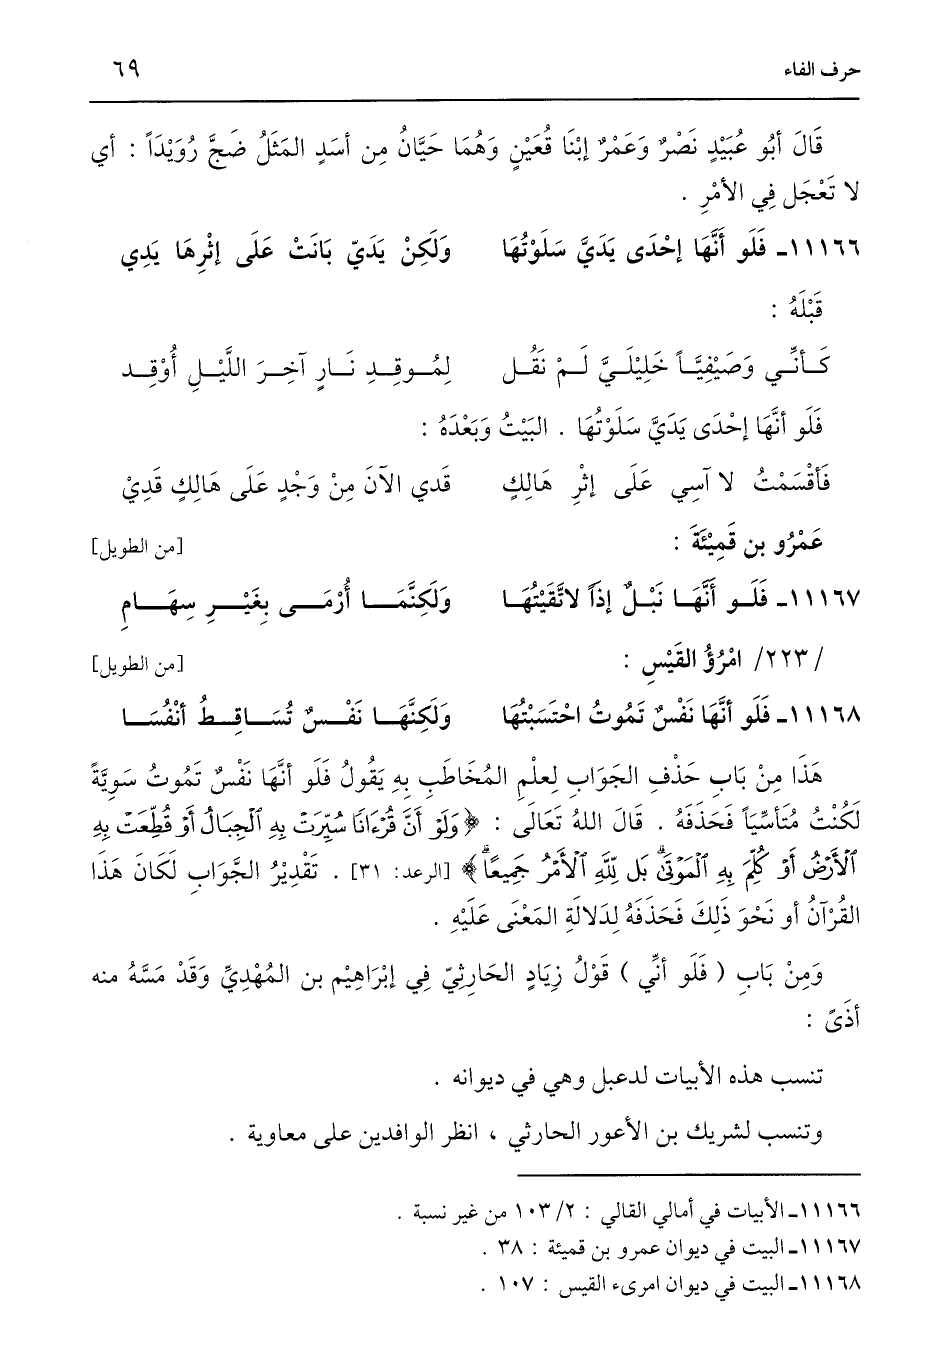 حرف الفاء ٦٩
قَالَ أبُو عُبَيْدٍ نَصْرٌ وَعَمْرٌ إبْنَا قُعَيْنٍ وَهُمَا حَيَّانُ مِن أسَدٍ المَثَلُ ضَحَّ رُوَيْدَاً : أي
لا تَعْجَل فِي الأمْرِ .
١١١٦٦ـ فَلَو أنَّهَا إحْدَى يَدَيَّ سَلَوْتُهَا وَلَكِنْ يَدَيّ بَانَتْ عَلَى إثْرِهَا يَدِي
قَبْلَهُ :
كَـأنِّـي وَصَيْفِيَّـاً خَلِيْلَـيَّ لَـمْ نَقُـل لِمُـوقِـدِ نَـارٍ آخِـرَ اللَّيْـلِ أُوْقِـد
فَلَو أنَّهَا إحْدَى يَدَيَّ سَلَوْتُهَا . البَيْتُ وَبَعْدَهُ :
فَأقْسَمْتُ لا آسِي عَلَى إثْرِ هَالِكٍ قَدي الآنَ مِنْ وَجْدٍ عَلَى هَالِكٍ قَدِيْ
عَمْرُو بن قَمِيْئَةَ : [من الطويل]
١١١٦٧ـ فَلَـو أَنَّهَـا نَبْـلٌ إذَاً لاتَّقَيْتُهَـا وَلَكِنَّمَـا أُرْمَـى بِغَيْـرِ سِهَـامِ
/٢٢٣/ امْرُؤُ القَيْسِ : [من الطويل]
١١١٦٨ـ فَلَو أنَّهَا نَفْسٌ تَمُوتُ احْتَسَبْتُهَا وَلَكِنَّهَـا نَفْـسٌ تُسَـاقِـطُ أنْفُسَـا
هَذَا مِنْ بَابِ حَذْفِ الجَوَابِ لِعِلْمِ المُخَاطَبِ بِهِ يَقُولُ فَلَو أنَّهَا نَفْسٌ تَمُوتُ سَوِيَّةً
لَكُنْتُ مُتَأسِّيَاً فَحَذَفَهُ . قَالَ اللهُ تَعَالَى : ﴿ وَلَوْ أَنَّ قُرْءَانًا سُيِّرَتْ بِهِ ٱلْجِبَالُ أَوْ قُطِّعَتْ بِهِ
ٱلْأَرْضُ أَوْ كُلِّمَ بِهِ ٱلْمَوْتَىٰۗ بَل لِّلَّهِ ٱلْأَمْرُ جَمِيعًاۗ ﴾ [الرعد: ٣١] . تَقْدِيْرُ الجَّوَابِ لَكَانَ هَذَا
القُرْآنُ أو نَحْوَ ذَلِكَ فَحَذَفَهُ لِدَلالَةِ المَعْنَى عَلَيْهِ .
وَمِنْ بَابِ ( فَلَو أنِّي ) قَوْلُ زِيَادٍ الحَارِثِيّ فِي إبْرَاهِيْم بن المُهْدِيِّ وَقَدْ مَسَّهُ منه
أذَىً :
تنسب هذه الأبيات لدعبل وهي في ديوانه .
وتنسب لشريك بن الأعور الحارثي ، انظر الوافدين على معاوية .
١١١٦٦ـ الأبيات في أمالي القالي : ٢/ ١٠٣ من غير نسبة .
١١١٦٧ـ البيت في ديوان عمرو بن قميئة : ٣٨ .
١١١٦٨ـ البيت في ديوان امرىء القيس : ١٠٧ .